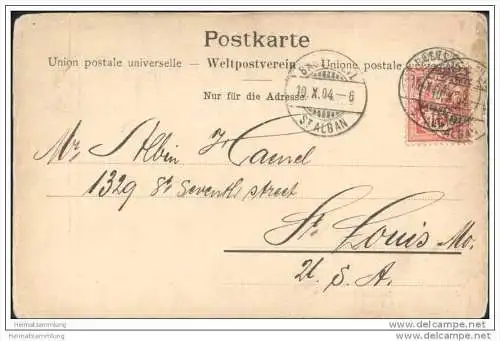 Postkarte
Union postale universelle – Weltpostverein – Unione postale
Nur für die Adresse.
10.X.04.–6
ST ALBAN
Mr. Albin Haenel
1329 Sth Seventh street
St. Louis Mo.
U. S. A.
Heimatsammlung
Heimatsammlung